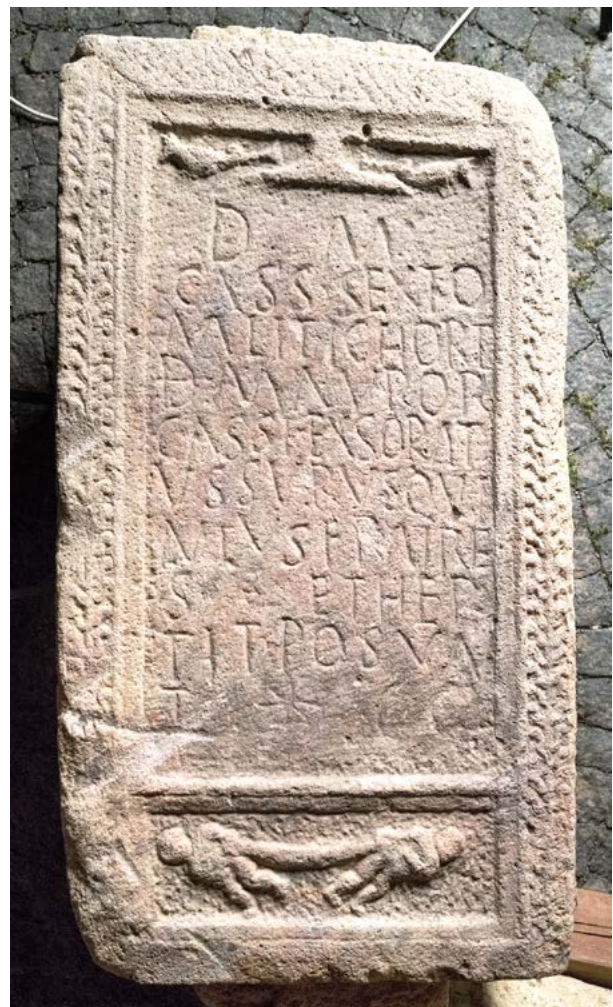 D M
CASS SEXTO
MILITI CHORT
MAVROR
CASS
VS SVRVS QV
FRATRE
S ET HER
TIT POSVA